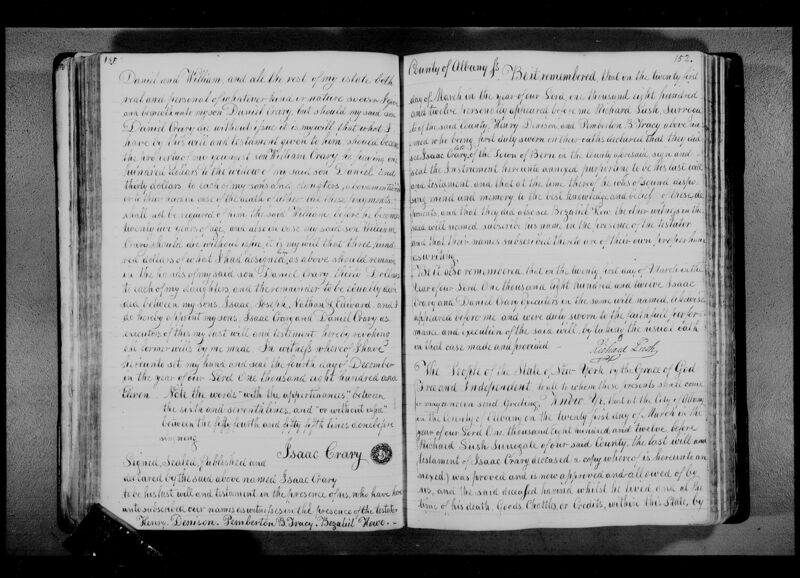 Daniel and William and all the rest of my estate both
real and personal of whatever kind or nature soever I give
and bequeath unto my son Daniel Crary, but should my said son
Daniel Crary die without issue it is my will that what I
have by this will and testament given to him should become
the property of my youngest son William Crary he paying one
hundred dollars to the widow of my said son Daniel and
thirty dollars to each of my sons and daughters, abovementioned
or to their heirs in case of the death of either all these payments
shall not be required of him the said William before he become
twenty two years of age, and also in case my said son William
Crary should die without issue, it is my will that three hund
red dollars of what I had assigned as above should remain
in the hands of my said son Daniel Crary thirty Dollars
to each of my daughters and the remainder to be equally devi
ded between my sons, Isaac Joseph, Nathan & Edward, and I
do hereby appoint my sons Isaac Crary and Daniel Crary as
executors of this my last will and testament hereby revoking
all former wills by me made. In witness whereof I have
hereunto set my hand and seal the fourth day of December
in the year of our Lord One thousand eight hundred and
Eleven — Note the words "with the appertenances" between
the sixth and seventh lines, and "or without issue"
between the fifty fourth and fifty fifth lines done before
signing
Isaac Crary
Signed, Sealed, Published and
declared by the said above named Isaac Crary
to be his last will and testament in the presence of us, who have here
unto subscribed our names as witnesses in the presence of the testator
Henry Denison. Pemberton B. Tracy. Bezaliel Howe. —
152.
County of Albany ss Be it remembered, that on the twenty first
day of March in the year of our Lord one thousand eight hundred
and twelve personally appeared before me Richard Lush, Surroga
te of the said County, Henry Denison and Pemberton B. Tracy above na
med who being first duly sworn on their oaths declared that they did
see Isaac Crary late of the Town of Bern in the County aforesaid, sign and
seal the Instrument hereunto annexed purporting to be his last will
and testament, and that at the time thereof he was of sound dispo
sing mind and memory to the best knowledge and belief of these de
ponents, and that they did also see Bezaliel How the other witness in the
said will named subscribe his name in the presence of the testator
and that their names subscribed thereto are of their own proper hand
aswriting.
Be it also remembered that on the twenty first day of March in the
year of our Lord One thousand eight hundred and twelve Isaac
Crary and Daniel Crary executors in the same will named, likewise
appeared before me and were duly sworn to the faithful perfor
mance and execution of the said will, by taking the usual oath
in that case made and provided —
Richard Lush
The People of the State of New York by the Grace of God
Free and Independent to all to whom these presents shall come
or may concern send Greeting, Know Ye, that at the City of Albany
in the County of Albany on the twenty first day of March in the
year of our Lord One thousand Eight hundred and twelve before
Richard Lush Surrogate of our said County, the last will and
testament of Isaac Crary deceased (a copy whereof is hereunto an
nexed) was proved and is now approved and allowed of by
us, and the said deceased having whilst he lived and at the
time of his death, Goods, Chattles, or Credits, within this State, by